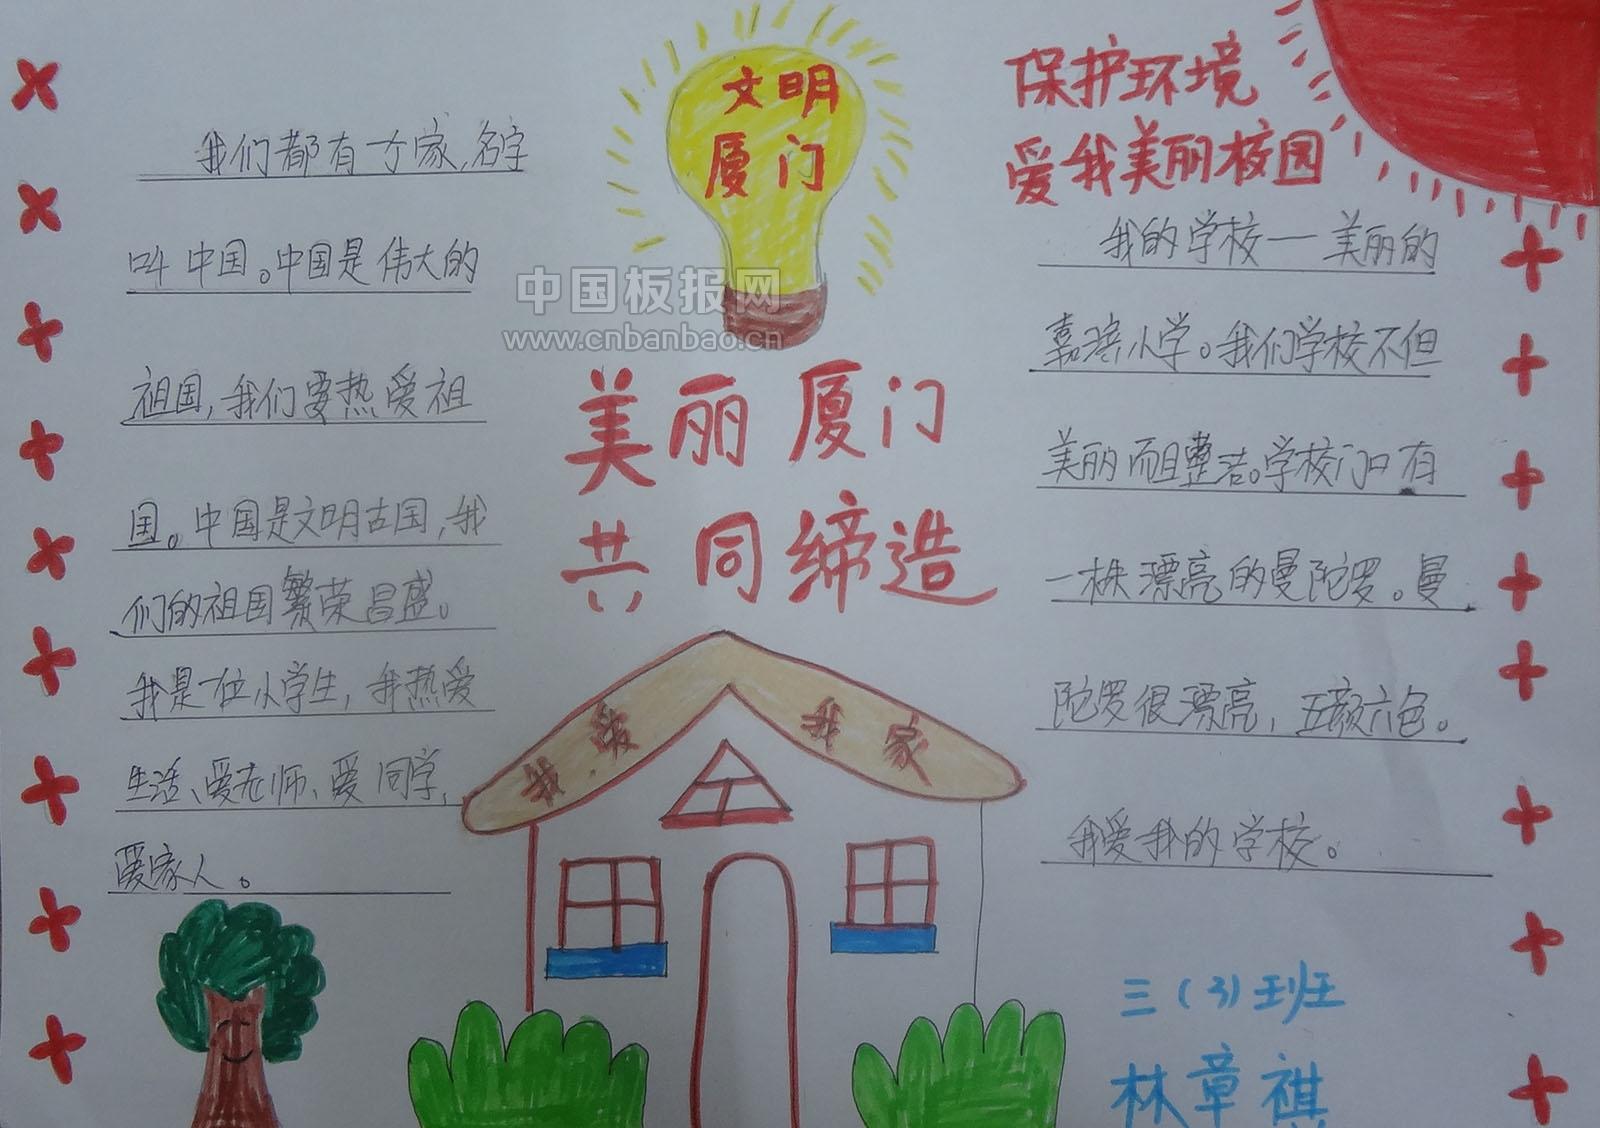 我们都有一个家,名字
叫中国。中国是伟大的
祖国,我们要热爱祖
国。中国是文明古国,我
们的祖国繁荣昌盛。
我是一位小学生,我热爱
生活、爱老师、爱同学、
爱家人。
文明
厦门
中国板报网
www.cnbanbao.cn
美丽厦门
共同缔造
我爱我家
保护环境
爱我美丽校园
我的学校一美丽的
嘉滨小学。我们学校不但
美丽而且整洁。学校门口有
一株漂亮的曼陀罗。曼
陀罗很漂亮,五颜六色。
我爱我的学校。
三(3)班
林章祺